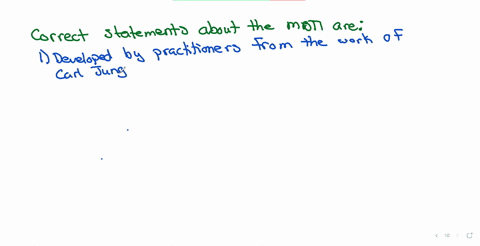 Correct statements about the MBTI are:
1) Developed by practitioners from the work of
Carl Jung